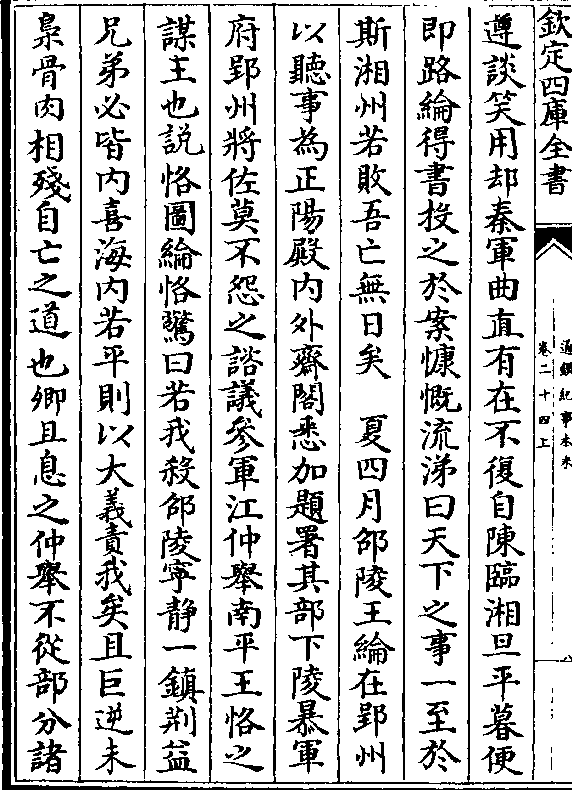 欽定四庫全書
通鑑紀事本末
卷二十四上
遵談笑用却秦軍曲直有在不復自陳臨湘旦平暮便
即路綸得書投之於案慷慨流涕曰天下之事一至於
斯湘州若敗吾亡無日矣　夏四月邵陵王綸在郢州
以聽事為正陽殿内外齋閤悉加題署其部下陵暴軍
府郢州將佐莫不怨之諮議參軍江仲舉南平王恪之
謀主也説恪圖綸恪驚曰若我殺邵陵寧静一鎮荆益
兄弟必皆内喜海内若平則以大義責我矣且巨逆未
梟骨肉相殘自亡之道也卿且息之仲舉不從部分諸